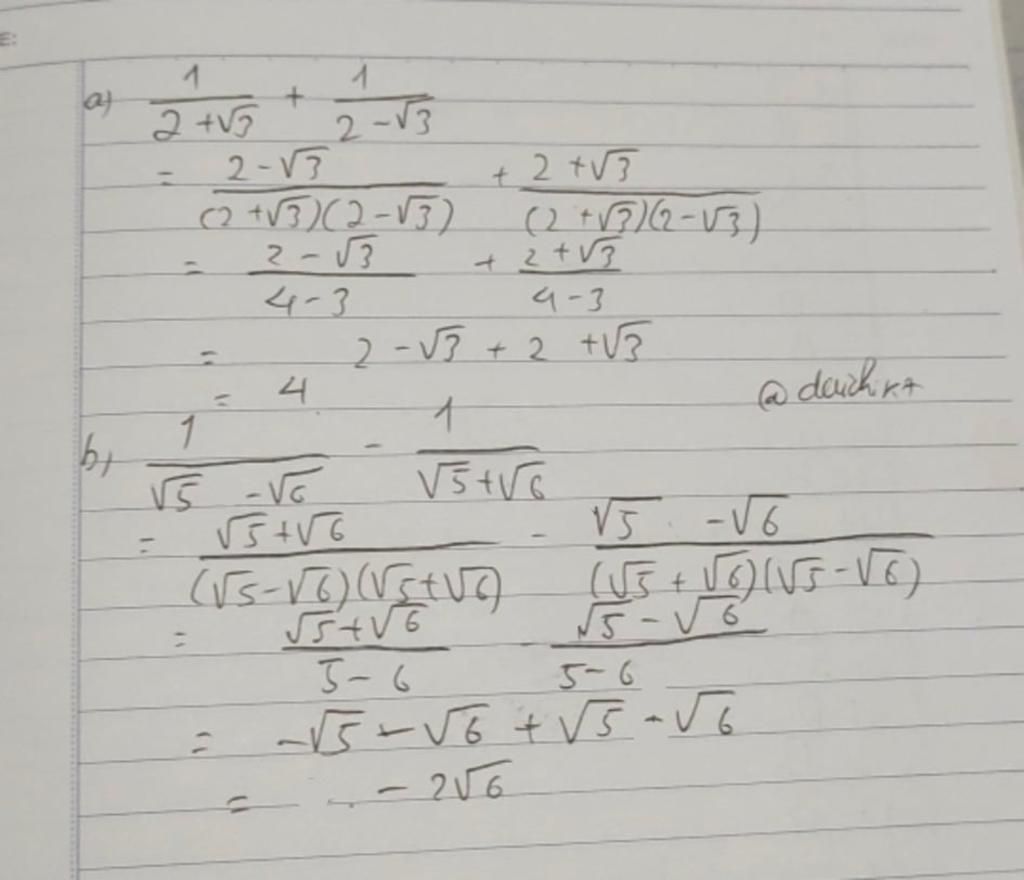 E:
a) 1/(2 + √3) + 1/(2 - √3)
= (2 - √3)/((2 + √3)(2 - √3)) + (2 + √3)/((2 + √3)(2 - √3))
= (2 - √3)/(4 - 3) + (2 + √3)/(4 - 3)
= 2 - √3 + 2 + √3
= 4
b) 1/(√5 - √6) - 1/(√5 + √6)
= (√5 + √6)/((√5 - √6)(√5 + √6)) - (√5 - √6)/((√5 + √6)(√5 - √6))
= (√5 + √6)/(5 - 6) - (√5 - √6)/(5 - 6)
= -√5 - √6 + √5 - √6
= - 2√6